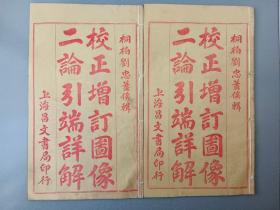 桐柏劉忠蓋侯輯
校正增訂圖像
二論引端詳解
上海昌文書局印行
桐柏劉忠蓋侯輯
校正增訂圖像
二論引端詳解
上海昌文書局印行